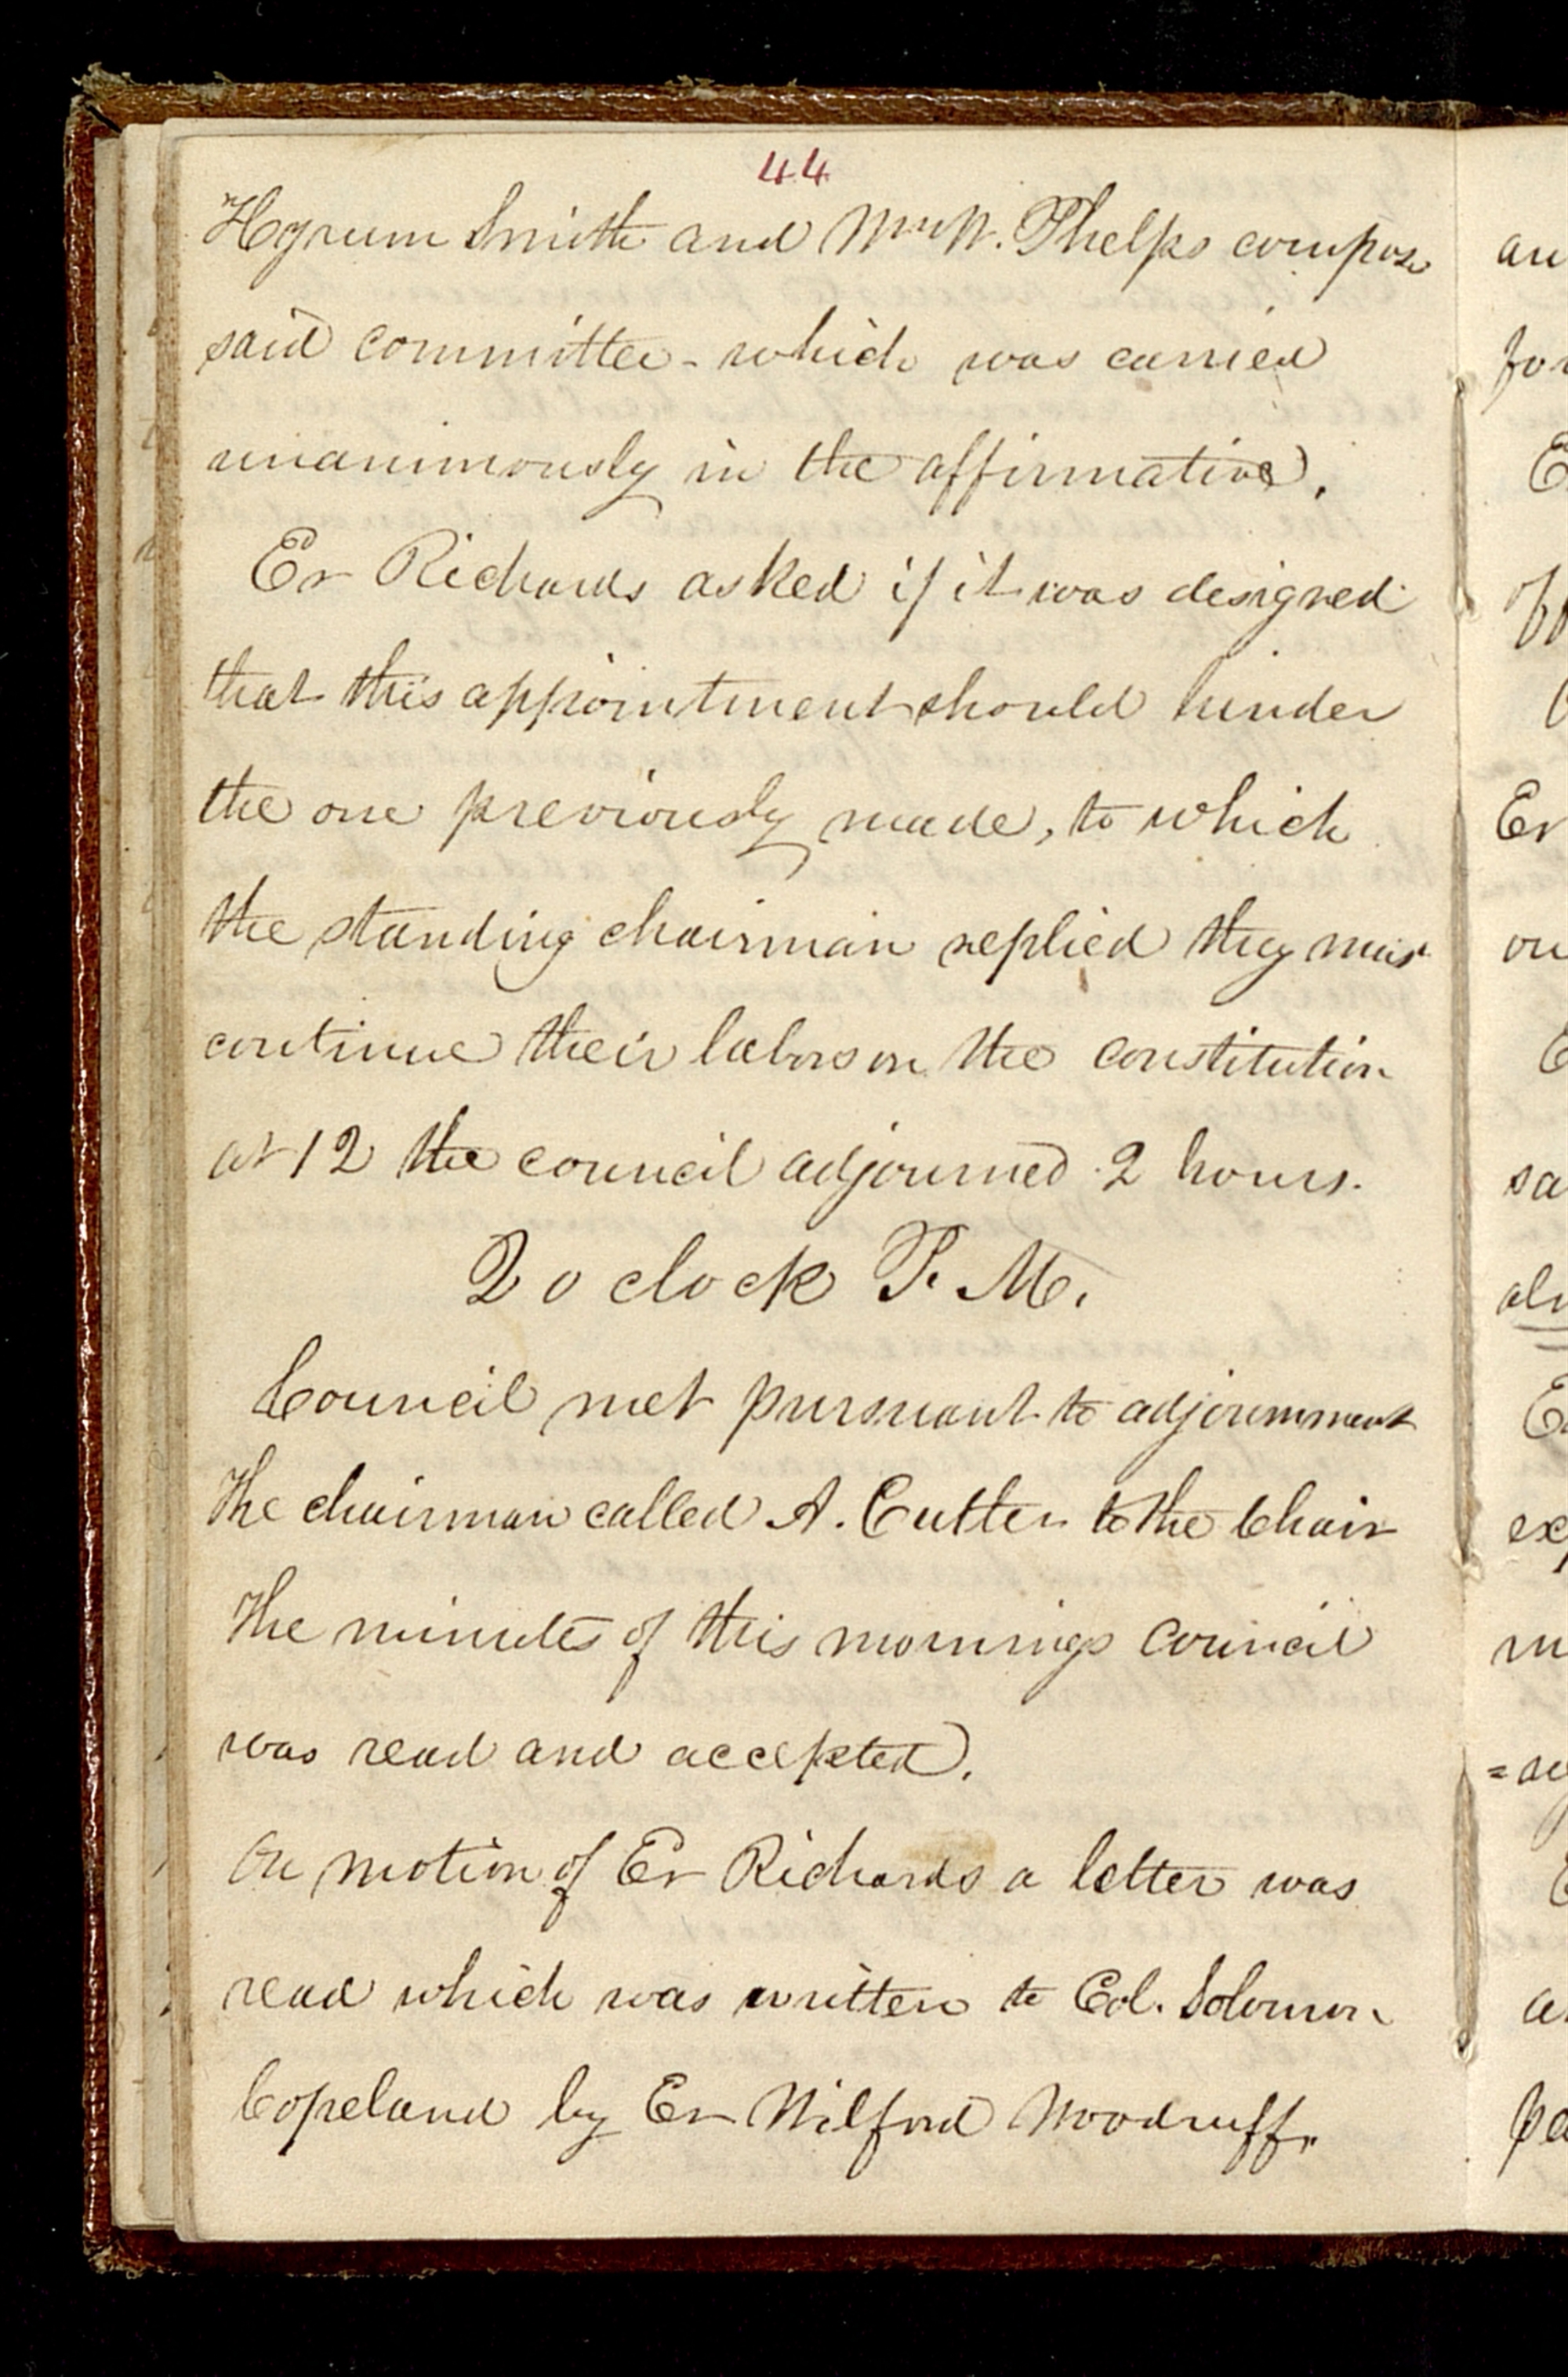 44
Hyrum Smith and Wm W. Phelps compose
said committee - which was carried
unanimously in the affirmative.
Er Richards asked if it was designed
that this appointment should hinder
the one previously made, to which
the standing chairman replied they must
continue their labors on the constitution
at 12 the council adjourned 2 hours.
2 o clock P. M.
Council met pursuant to adjournment
The chairman called A. Cutler to the Chair
The minutes of this mornings council
was read and accepted.
On motion of Er Richards a letter was
read which was written to Col. Solomon
Copeland by Er Wilford Woodruff.
an
for
E
off
Er
on
E
sa
alw
E
exp
m
=
E
a
pa